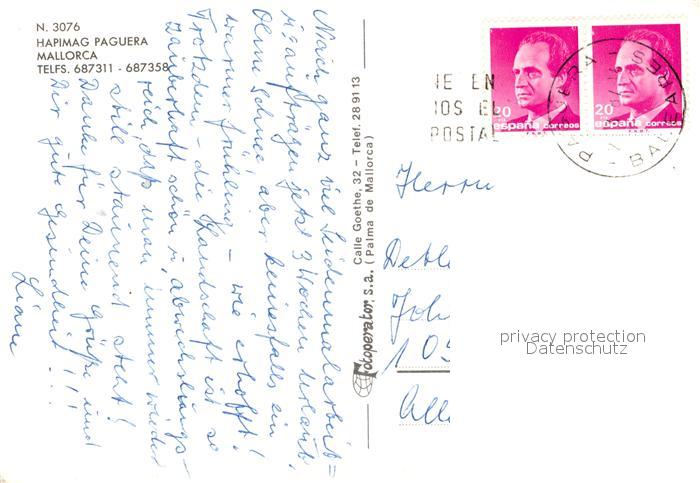 N. 3076
HAPIMAG PAGUERA
MALLORCA
TELFS. 687311 - 687358
Nach ganz viel Seidenmalarbeit=
u. aufträgen jetzt 3 Wochen Urlaub.
Ohne Schnee aber keinesfalls ein
warmer Frühling – wie erhofft!
Trotzdem – die Landschaft ist so
zauberhaft schön u. abwechslungs-
reich, daß man immer wieder
stille staunend steht!
Danke für Deine Grüße und
Dir gute Gesundheit!!!
Liane
Fotoperator, s.a. Calle Goethe, 32 – Telef. 28 91 13
(Palma de Mallorca)
IE EN
IOS EL
POSTAL
20
españa correos
F.N.M.T.
20
españa correos
F.N.M.T.
BALEARES
Herrn
Detl
Joh
105
privacy protection
Datenschutz